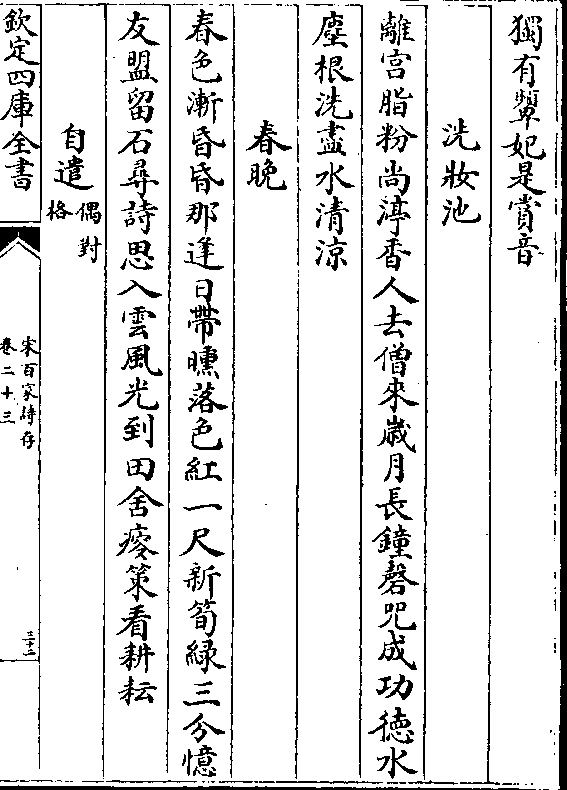 獨有顰妃是賞音
洗妝池
離宫脂粉尚渟香人去僧來歳月長鐘磬咒成功徳水
塵根洗盡水清涼
春晚
春色漸昏昏那逢日帶曛落色紅一尺新筍緑三分憶
友盟留石尋詩思入雲風光到田舍痠策看耕耘
自遣 偶對格
欽定四庫全書
宋百家詩存
卷二十三
三十二